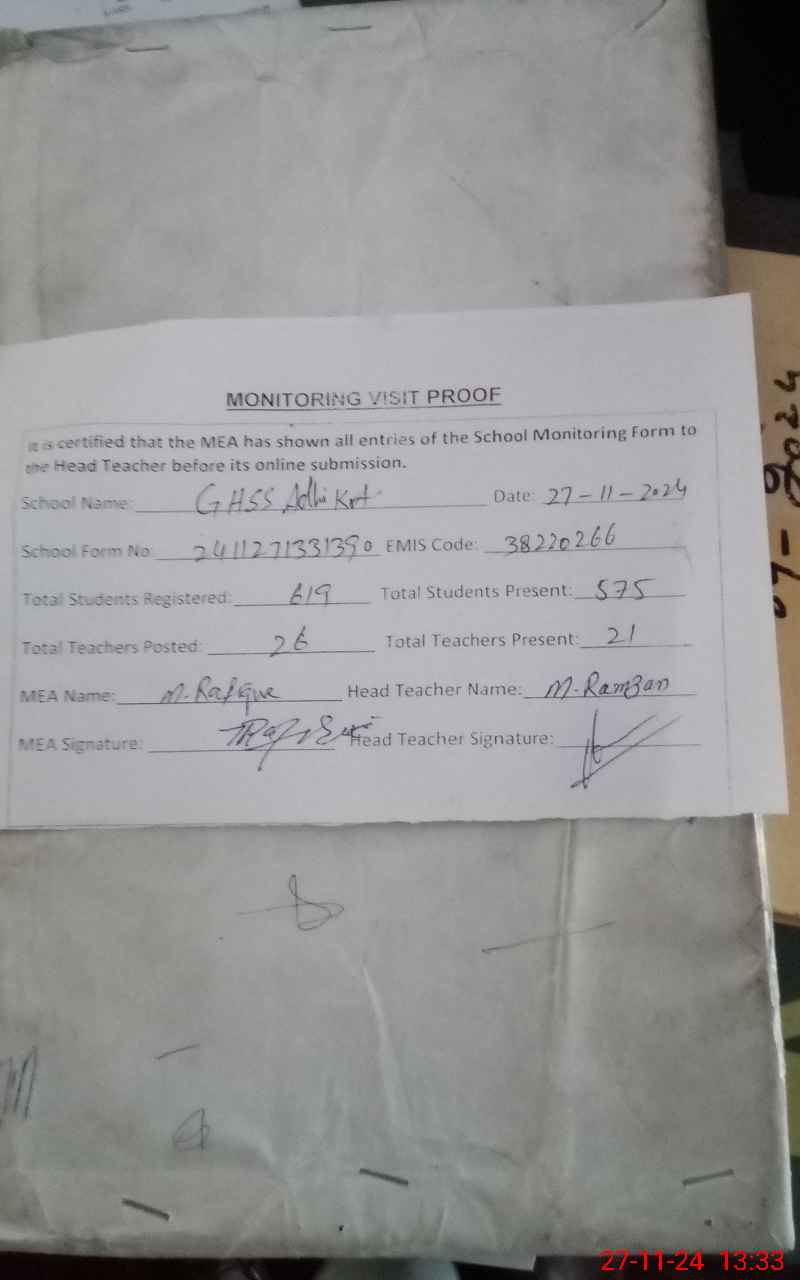 MONITORING VISIT PROOF
It is certified that the MEA has shown all entries of the School Monitoring Form to
the Head Teacher before its online submission.
School Name: GHSS Adhi Kot Date: 27-11-2024
School Form No: 2411271331390 EMIS Code: 38220266
Total Students Registered: 619 Total Students Present: 575
Total Teachers Posted: 26 Total Teachers Present: 21
MEA Name: M. Rafique Head Teacher Name: M. Ramzan
MEA Signature: Head Teacher Signature:
2024
27-11-24 13:33